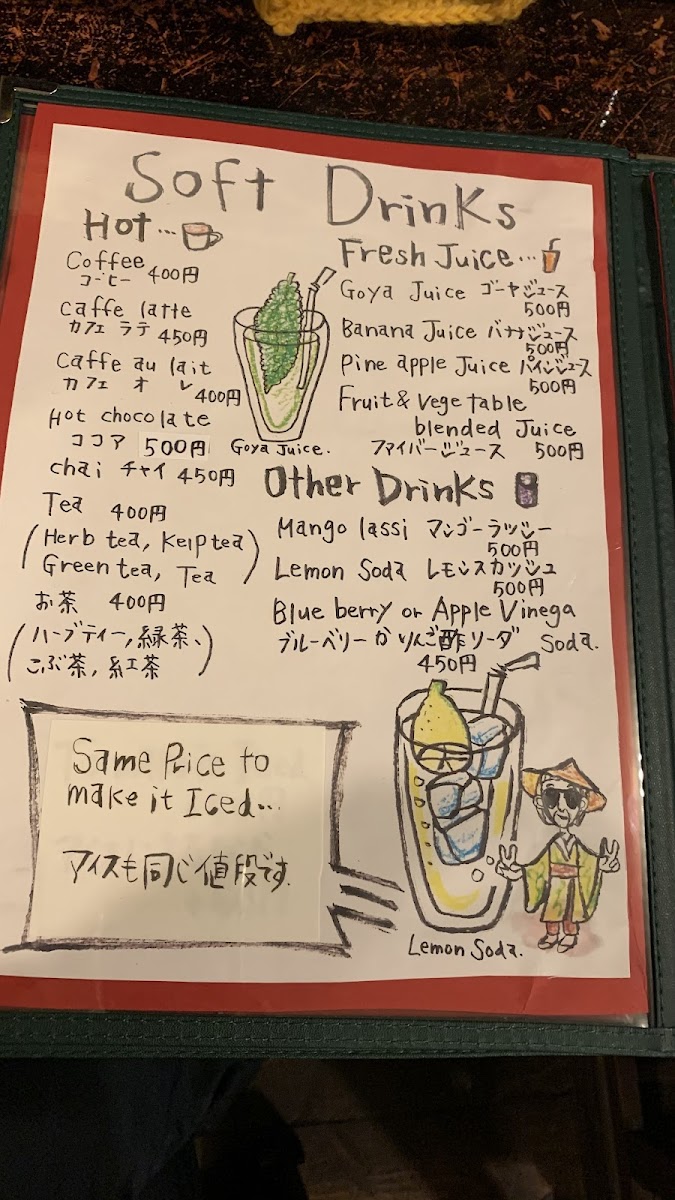 Soft Drinks
Hot...
Coffee
コーヒー 400円
caffe latte
カフェ ラテ 450円
Caffe au lait
カフェ オ レ 400円
Hot chocolate
ココア 500円
chai チャイ 450円
Tea 400円
(Herb tea, Kelp tea
Green tea, Tea)
お茶 400円
(ハーブティー,緑茶、
こぶ茶,紅茶)
Goya Juice.
Fresh Juice...
Goya Juice ゴーヤジュース
500円
Banana Juice バナナジュース
500円
Pine apple Juice パインジュース
500円
Fruit & vege table
blended Juice
ファイバージュース 500円
Other Drinks
Mango lassi マンゴーラッシー
500円
Lemon Soda レモンスカッシュ
500円
Blue berry or Apple Vinega
ブルーベリーかりんご酢ソーダ Soda.
450円
Same Price to
make it Iced...
アイスも同じ値段です.
Lemon Soda.